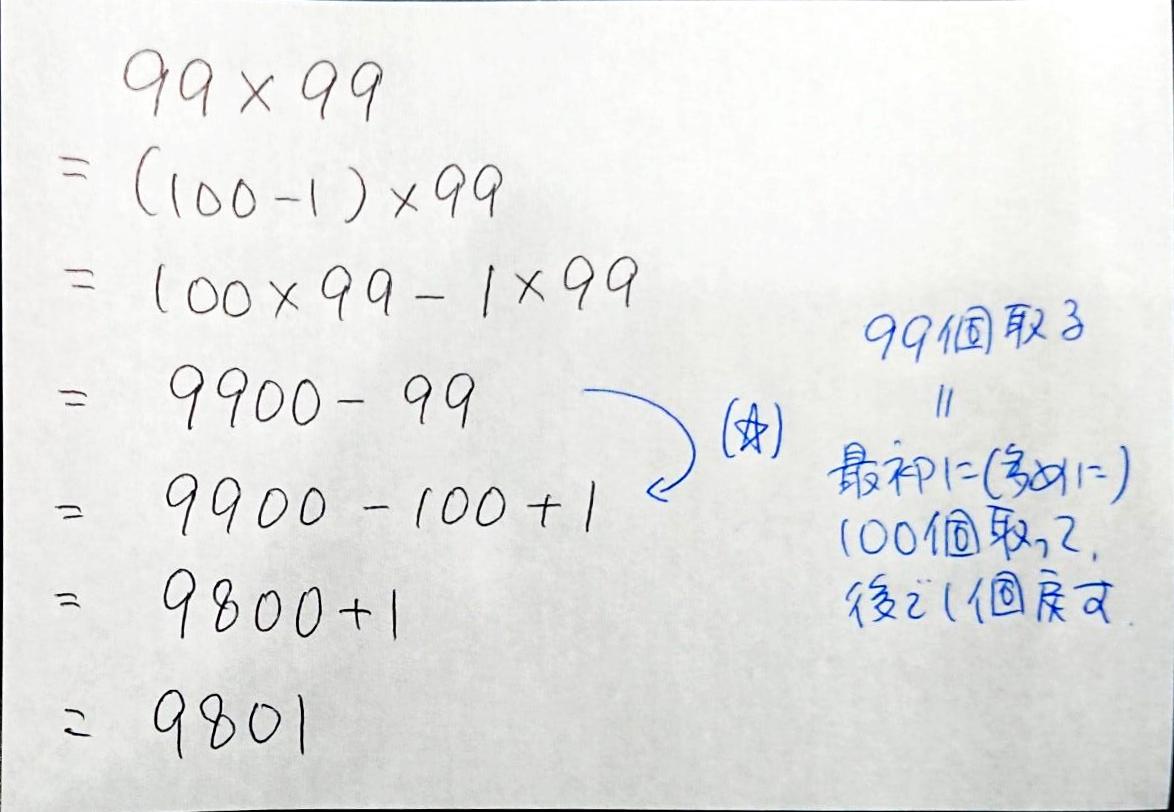 99×99
= (100-1)×99
= 100×99 - 1×99
= 9900 - 99
= 9900 - 100 + 1
= 9800+1
= 9801
(☆)
99個取る
=
最初に(多めに)
100個取って、
後で1個戻す.